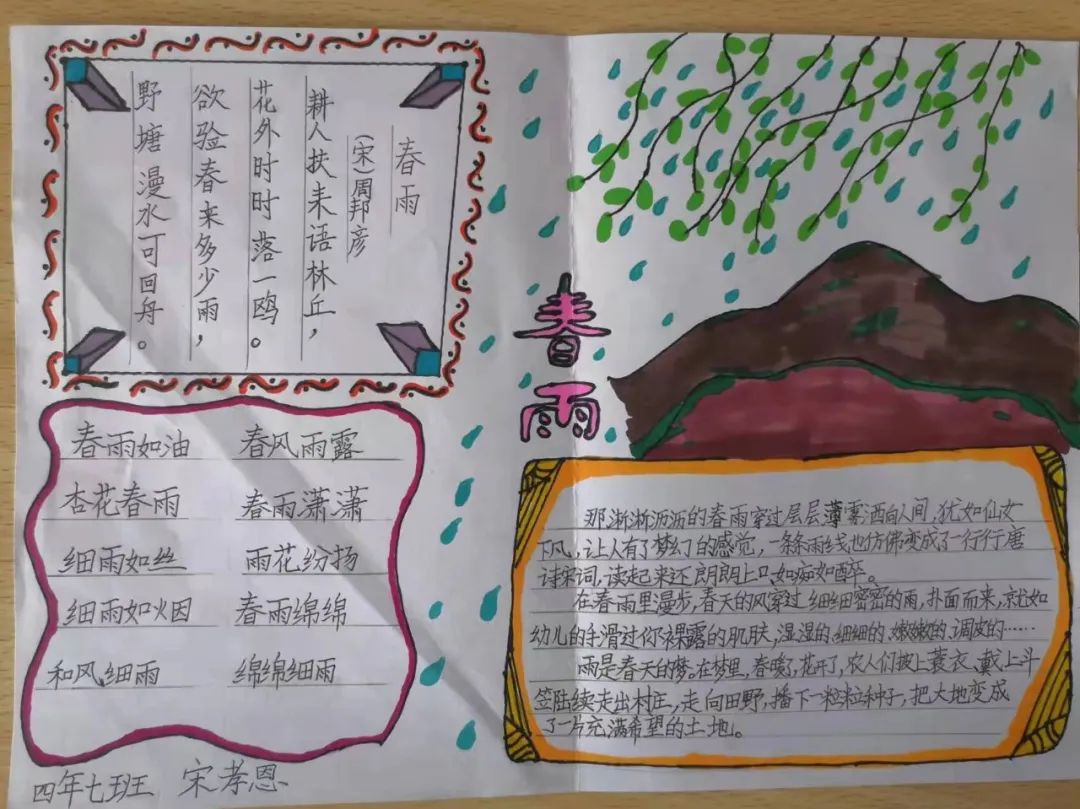 春雨
(宋)周邦彦
耕人扶耒语林丘,
花外时时落一鸥。
欲验春来多少雨,
野塘漫水可回舟。
春雨
春雨如油 春风雨露
杏花春雨 春雨潇潇
细雨如丝 雨花纷扬
细雨如烟 春雨绵绵
和风细雨 绵绵细雨
那淅淅沥沥的春雨穿过层层薄雾洒向人间,犹如仙女
下凡,让人有了梦幻的感觉,一条条雨线也仿佛变成了一行行唐
诗宋词,读起来还朗朗上口,如痴如醉。
在春雨里漫步,春天的风穿过细细密密的雨,扑面而来,就如
幼儿的手滑过你裸露的肌肤,湿湿的、细细的、嫩嫩的、调皮的……
雨是春天的梦。在梦里,春暖了,花开了,农人们披上蓑衣、戴上斗
笠陆续走出村庄,走向田野,播下一粒粒种子,把大地变成
了一片充满希望的土地。
四年七班 宋孝恩